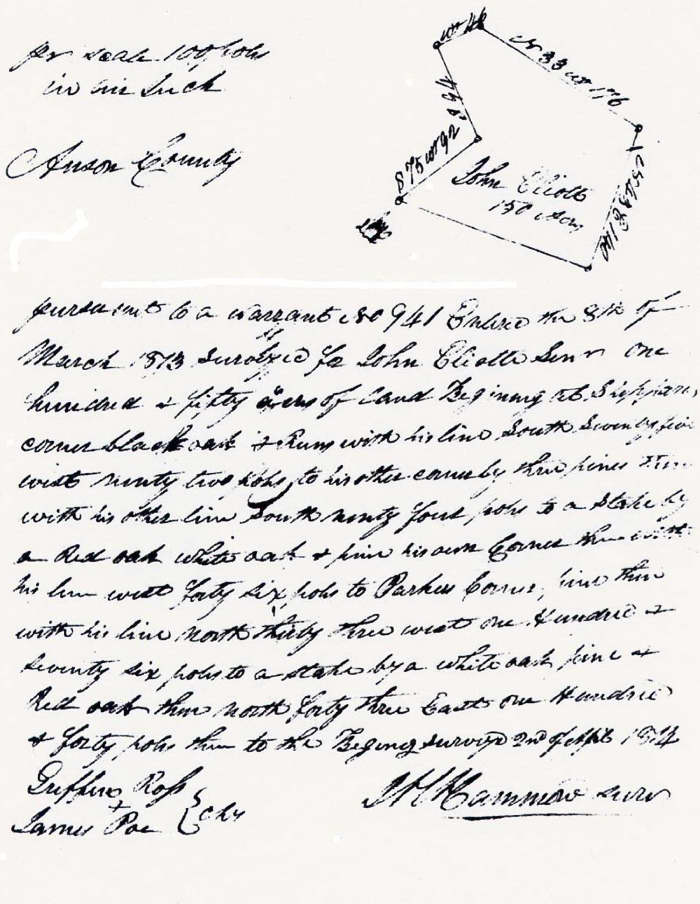 pr scale 100 pols
in an Inch
Anson County
wt 46
N 33 wt 176
S 94
S 75 wt 92
N 43 E 140
John Eliott
150 acrs
pursuant to a warrant No 941 Entered the 8th of
March 1813 Survey'd for John Eliotte Senr One
hundred & fifty acres of land Begining at
corner black oak & Runs with his line South Seventy five
west ninty two pols to his other corner by three pines then
with his other line South ninty four pols to a Stake by
a Red oak white oak & pine his own Corner then with
his line west forty six pols to Parkers Corner, pine then
with his line north thirty three west one Hundred &
Seventy six pols to a stake by a white oak pine &
Red oak then north forty three East one Hundred
& forty pols then to the Begining surveyd 2nd of Apl 1814
Griffin Ross
James Poe } Chs
Hammon Survr